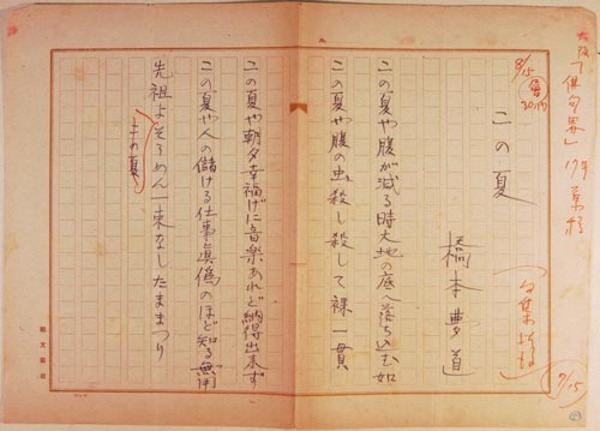 大阪「俳句界」
8/15
この夏
橋本夢道
この夏や腹が減る時大地の底へ落ち込む如
この夏や腹の虫殺し殺して裸一貫
この夏や朝夕幸福げに音楽あれど納得出来ず
この夏や人の儲ける仕事真偽のほど知る無用
先祖よそうめん一束なしたままつり
この夏
9/15